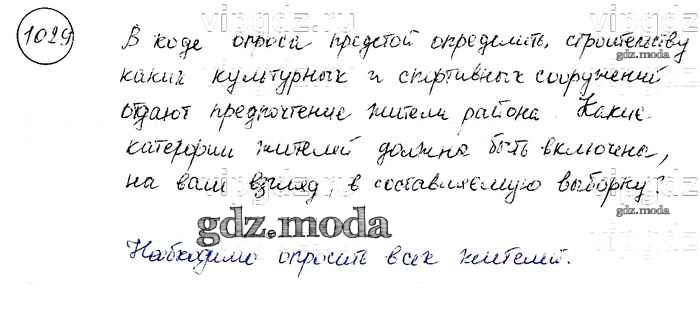 1029
В ходе опроса предстой определить, строительству
каких культурных и спортивных сооружений
отдают предпочтение жители района. Какие
категории жителей должна быть включена,
на ваш взгляд, в составляемую выборку?
Необходимо опросить всех жителей.
vipgdz.com
gdz.moda
gdz.moda
gdz.moda
gdz.moda